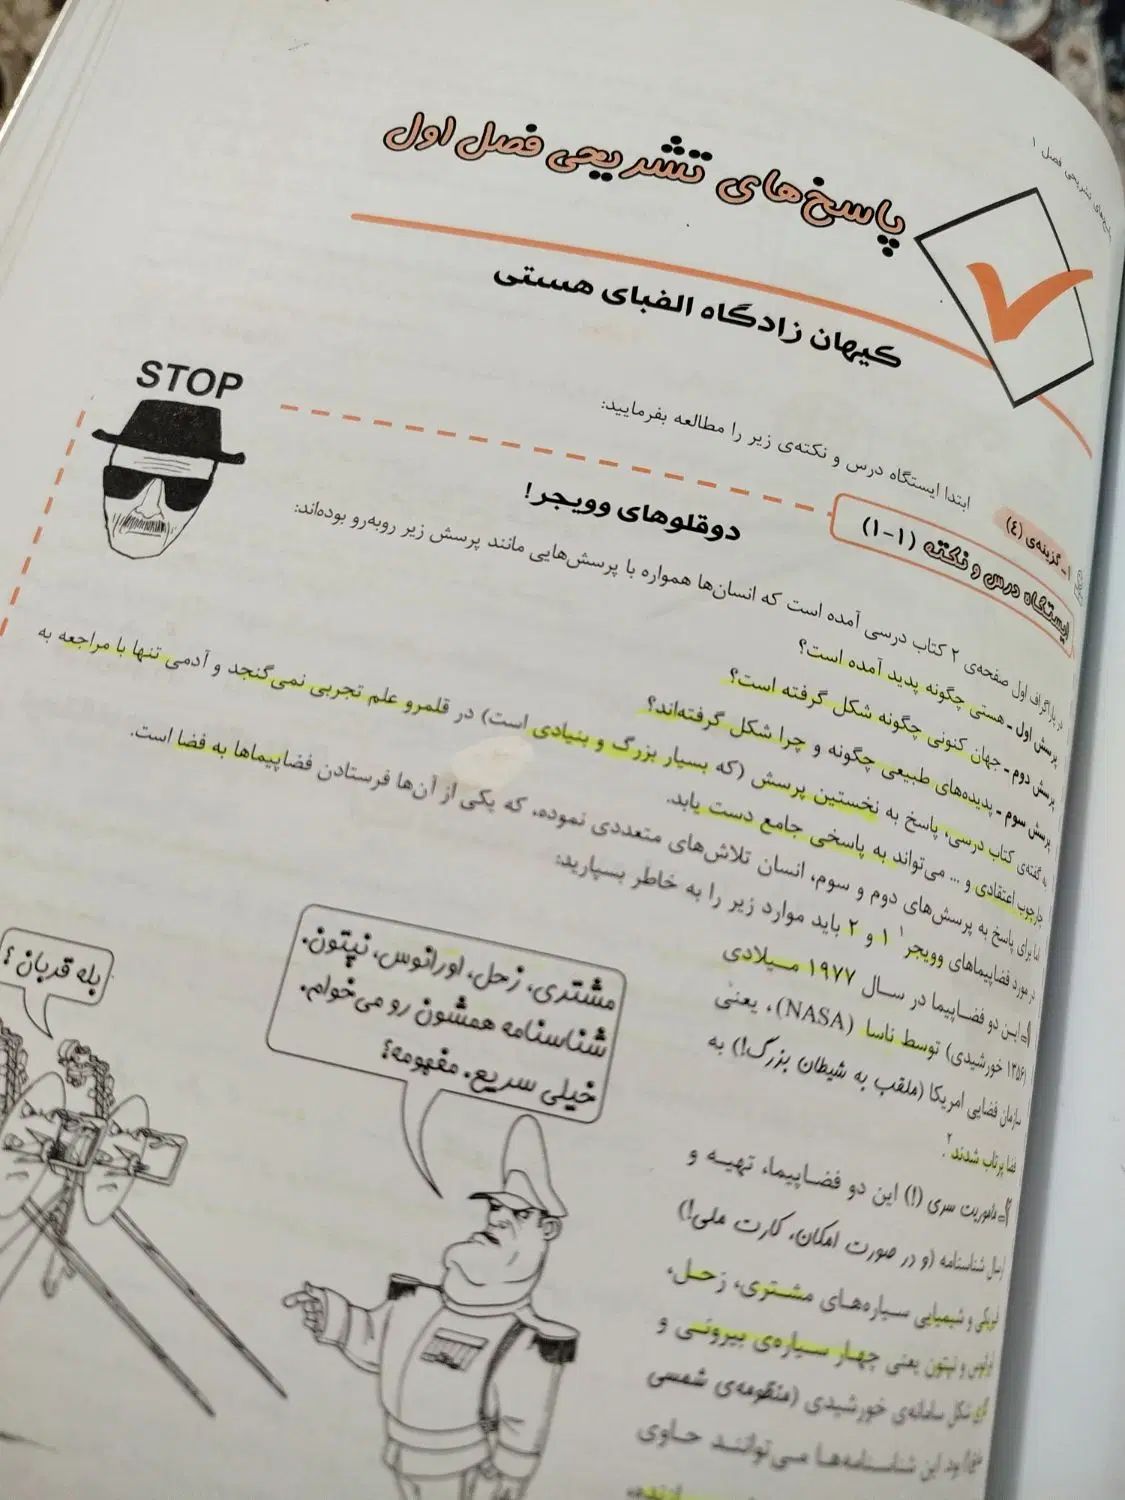 پاسخ‌های تشریحی فصل ۱
پاسخ‌های تشریحی فصل اول
کیهان زادگاه الفبای هستی
STOP
۱ـ گزینه‌ی (۴)
ابتدا ایستگاه درس و نکته‌ی زیر را مطالعه بفرمایید:
ایستگاه درس و نکته (۱-۱)
دوقلوهای وویجر!
در پاراگراف اول صفحه‌ی ۲ کتاب درسی آمده است که انسان‌ها همواره با پرسش‌هایی مانند پرسش زیر روبه‌رو بوده‌اند:
پرسش اول ـ هستی چگونه پدید آمده است؟
پرسش دوم ـ جهان کنونی چگونه شکل گرفته است؟
پرسش سوم ـ پدیده‌های طبیعی چگونه و چرا شکل گرفته‌اند؟
به گفته‌ی کتاب درسی، پاسخ به نخستین پرسش (که بسیار بزرگ و بنیادی است) در قلمرو علم تجربی نمی‌گنجد و آدمی تنها با مراجعه به
چارچوب اعتقادی و ... می‌تواند به پاسخی جامع دست یابد.
اما برای پاسخ به پرسش‌های دوم و سوم، انسان تلاش‌های متعددی نموده، که یکی از آن‌ها فرستادن فضاپیماها به فضا است.
در مورد فضاپیماهای وویجر۱ ۱ و ۲ باید موارد زیر را به خاطر بسپارید:
ایـن دو فضـاپیما در سـال ۱۹۷۷ میـلادی
(۱۳۵۶ خورشیدی) توسط ناسا (NASA)، یعنی
سازمان فضایی امریکا (ملقب به شیطان بزرگ!) به
فضا پرتاب شدند۲.
ماموریت سری (!) این دو فضـاپیما، تهیـه و
ارسال شناسنامه (و در صورت امکان، کارت ملی!)
فیزیکی و شیمیایی سیـاره‌هـای مشـتری، زحـل،
اورانوس و نپتون یعنی چهـار سیـاره‌ی بیرونـی و
گازی شکل سامانه‌ی خورشیدی (منظومه‌ی شمسی
بود این شناسـنامه‌هـا مـی‌تواننـد حـاوی
مشتری، زحل، اورانوس، نپتون.
شناسنامه همشون رو می‌خوام.
خیلی سریع. مفهومه؟
بله قربان؟